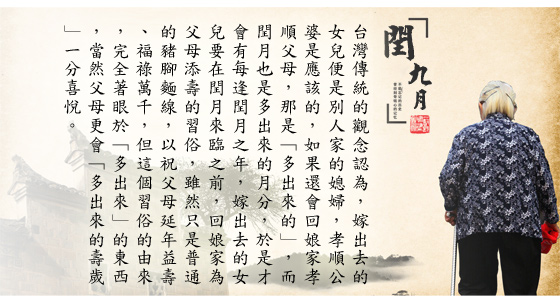 閏九月
台灣傳統的觀念認為，嫁出去的
女兒便是別人家的媳婦，孝順公
婆是應該的，如果還會回娘家孝
順父母，那是「多出來的」，而
閏月也是多出來的月分，於是才
會有每逢閏月之年，嫁出去的女
兒要在閏月來臨之前，回娘家為
父母添壽的習俗，雖然只是普通
的豬腳麵線，以祝父母延年益壽
、福祿萬千，但這個習俗的由來
，完全著眼於「多出來」的東西
，當然父母更會「多出來的壽歲
」一分喜悅。